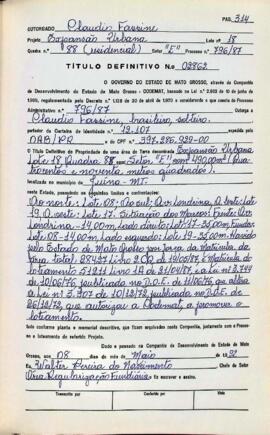 PAG. 314
OUTORGADO Claudio Fassine
Projeto Expansão Urbana Lote n.º 18
Quadra n.º 88 (residencial) Setor "E" Processo n.º 796/87
TÍTULO DEFINITIVO N.º 02862
O GOVERNO DO ESTADO DE MATO GROSSO, através da Companhia
de Desenvolvimento do Estado de Mato Grosso - CODEMAT, baseado na Lei n.º
junho de e considerando o que consta do Processo
Administrativo n.º 796/87
Outorga a
Claudio Fassine, brasileiro, solteiro,
portador da Carteira de Identidade n.º 19.107
OAB/PR e CPF n.º 397.286.929-00
o Título Definitivo de Propriedade de uma área de terra denominada Expansão Urbana,
Lote 18 Quadra 88 Setor "E" com 490,00m² (Qua-
trocentos e noventa metros quadrados).
localizada no município de Juína - MT.
neste Estado, possuindo os seguintes limites e confrontações:
Ao norte: Lote: 08; Ao sul: Av: Londrina, A leste: Lote:
19, A oeste: Lote: 17. Situação dos Marcos: Frente: Av:
Londrina - 14,00m, Lado direito: Lote 17 - 35,00m, Fundos:
Lote 08 - 14,00m, Lado esquerdo: Lote 19 - 35,00m. Havido
pelo Estado de Mato Grosso por força da Matrícula da
área total: 28427 Livro 2 de 19/05/87, e Matrícula do
Loteamento 51211 de 21/04/87, e a Lei n.º 3.744
de 10/06/76, publicado no D.O.E. de 11/06/76, que altera
a Lei n.º 3.307 de 10/12/72, publicado no D.O.E. de
26/12/72, que autorizou a Codemat, a promover o
loteamento.
tudo conforme planta e memorial descritivo, que ficam arquivados nesta Companhia, juntamente com o Proces-
so e loteamento do referido Projeto.
Dado e passado na Companhia de Desenvolvimento do Estado de Mato
Grosso, aos 08 dias do mês de Maio de 1992
Eu Walter Pereira do Nascimento Chefe do Setor
Regularização Fundiária fiz escrever e assino.